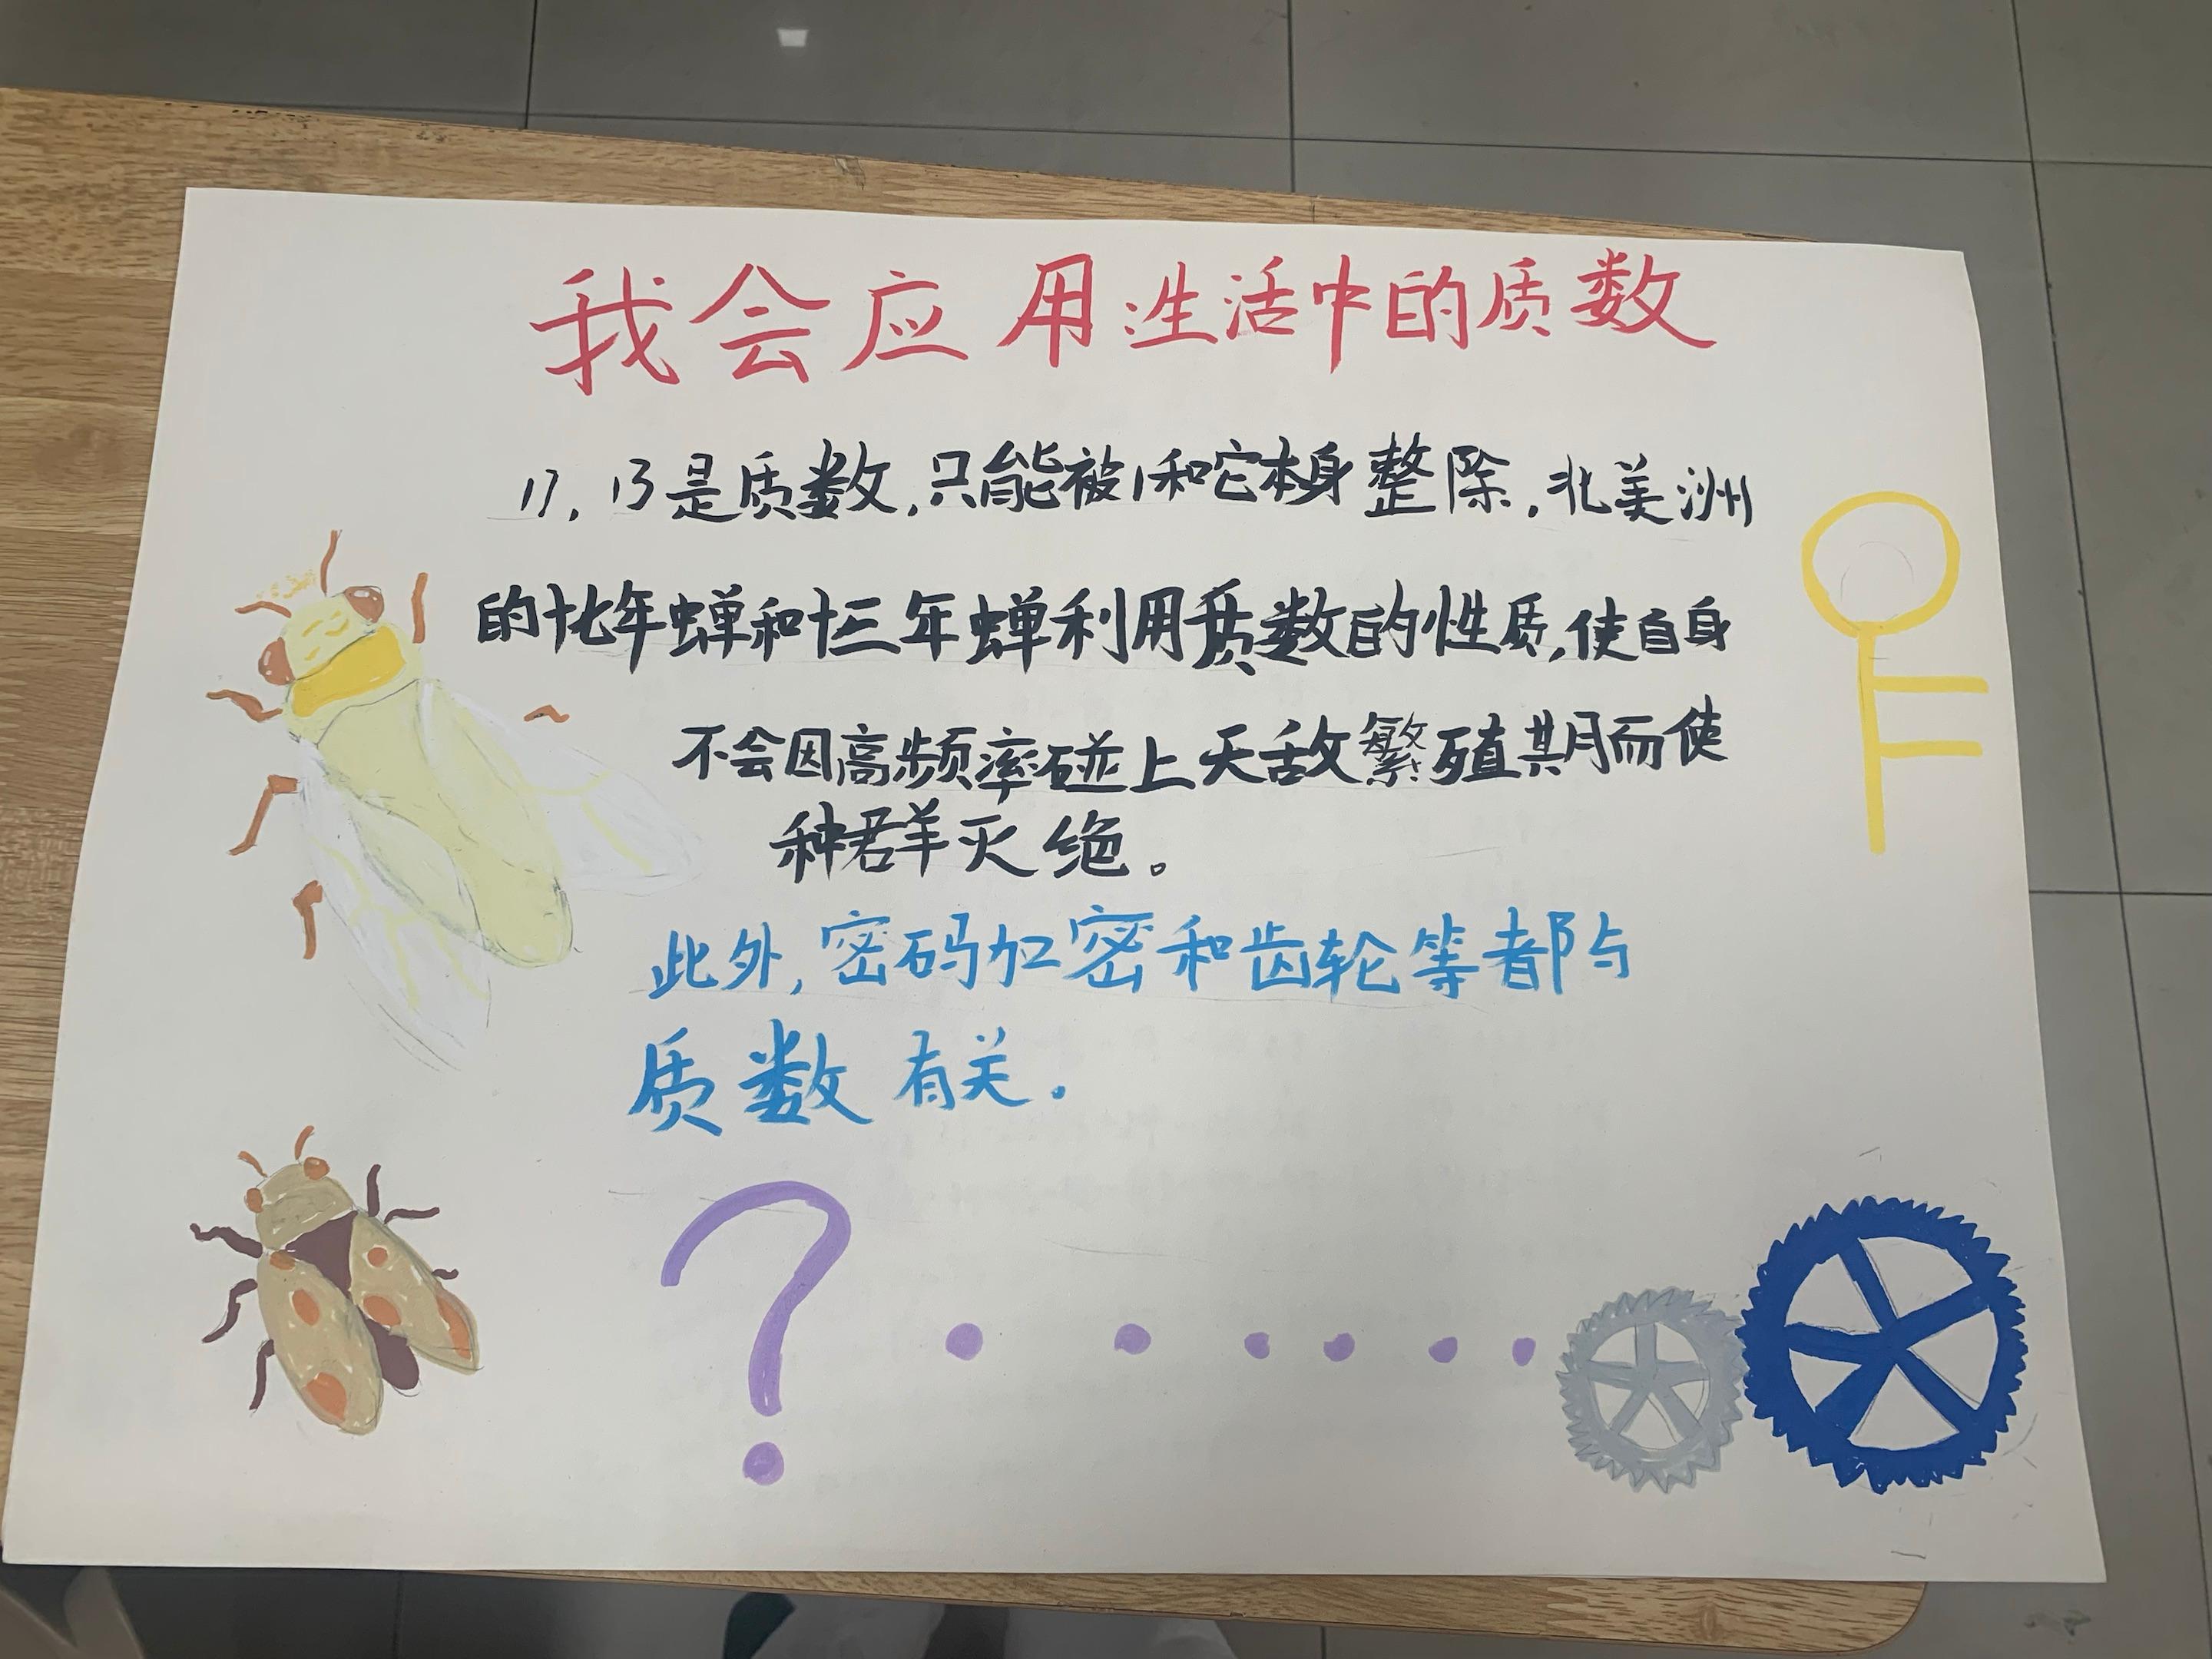 我会应用生活中的质数
17,13是质数,只能被1和它本身整除,北美洲
的十七年蝉和十三年蝉利用质数的性质,使自身
不会因高频率碰上天敌繁殖期而使
种群灭绝。
此外,密码加密和齿轮等都与
质数有关.
?......